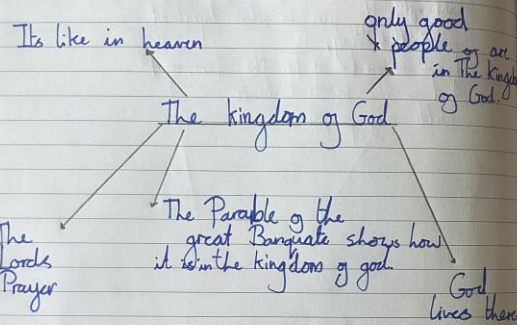 Its like in heaven
only good
people or are
in The Kingdom
og God.
The kingdom og God
The
Lords
Prayer
The Parable og the
great Banquate shows how
it is in the kingdom og god.
God
lives there